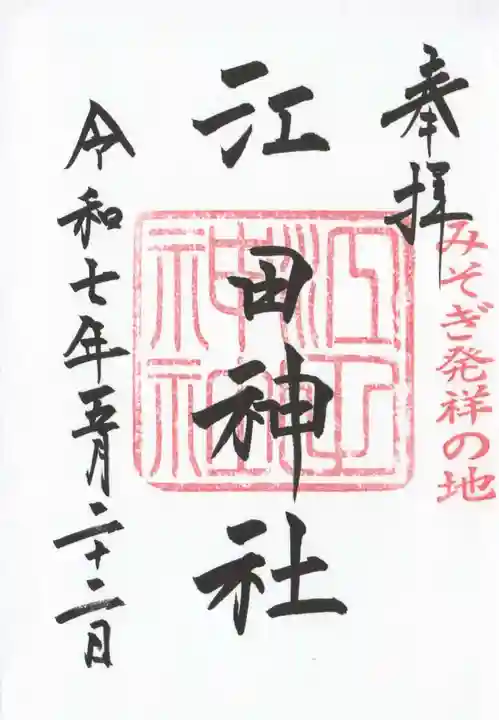 奉拝
みそぎ発祥の地
江田神社
令和七年五月二十二日